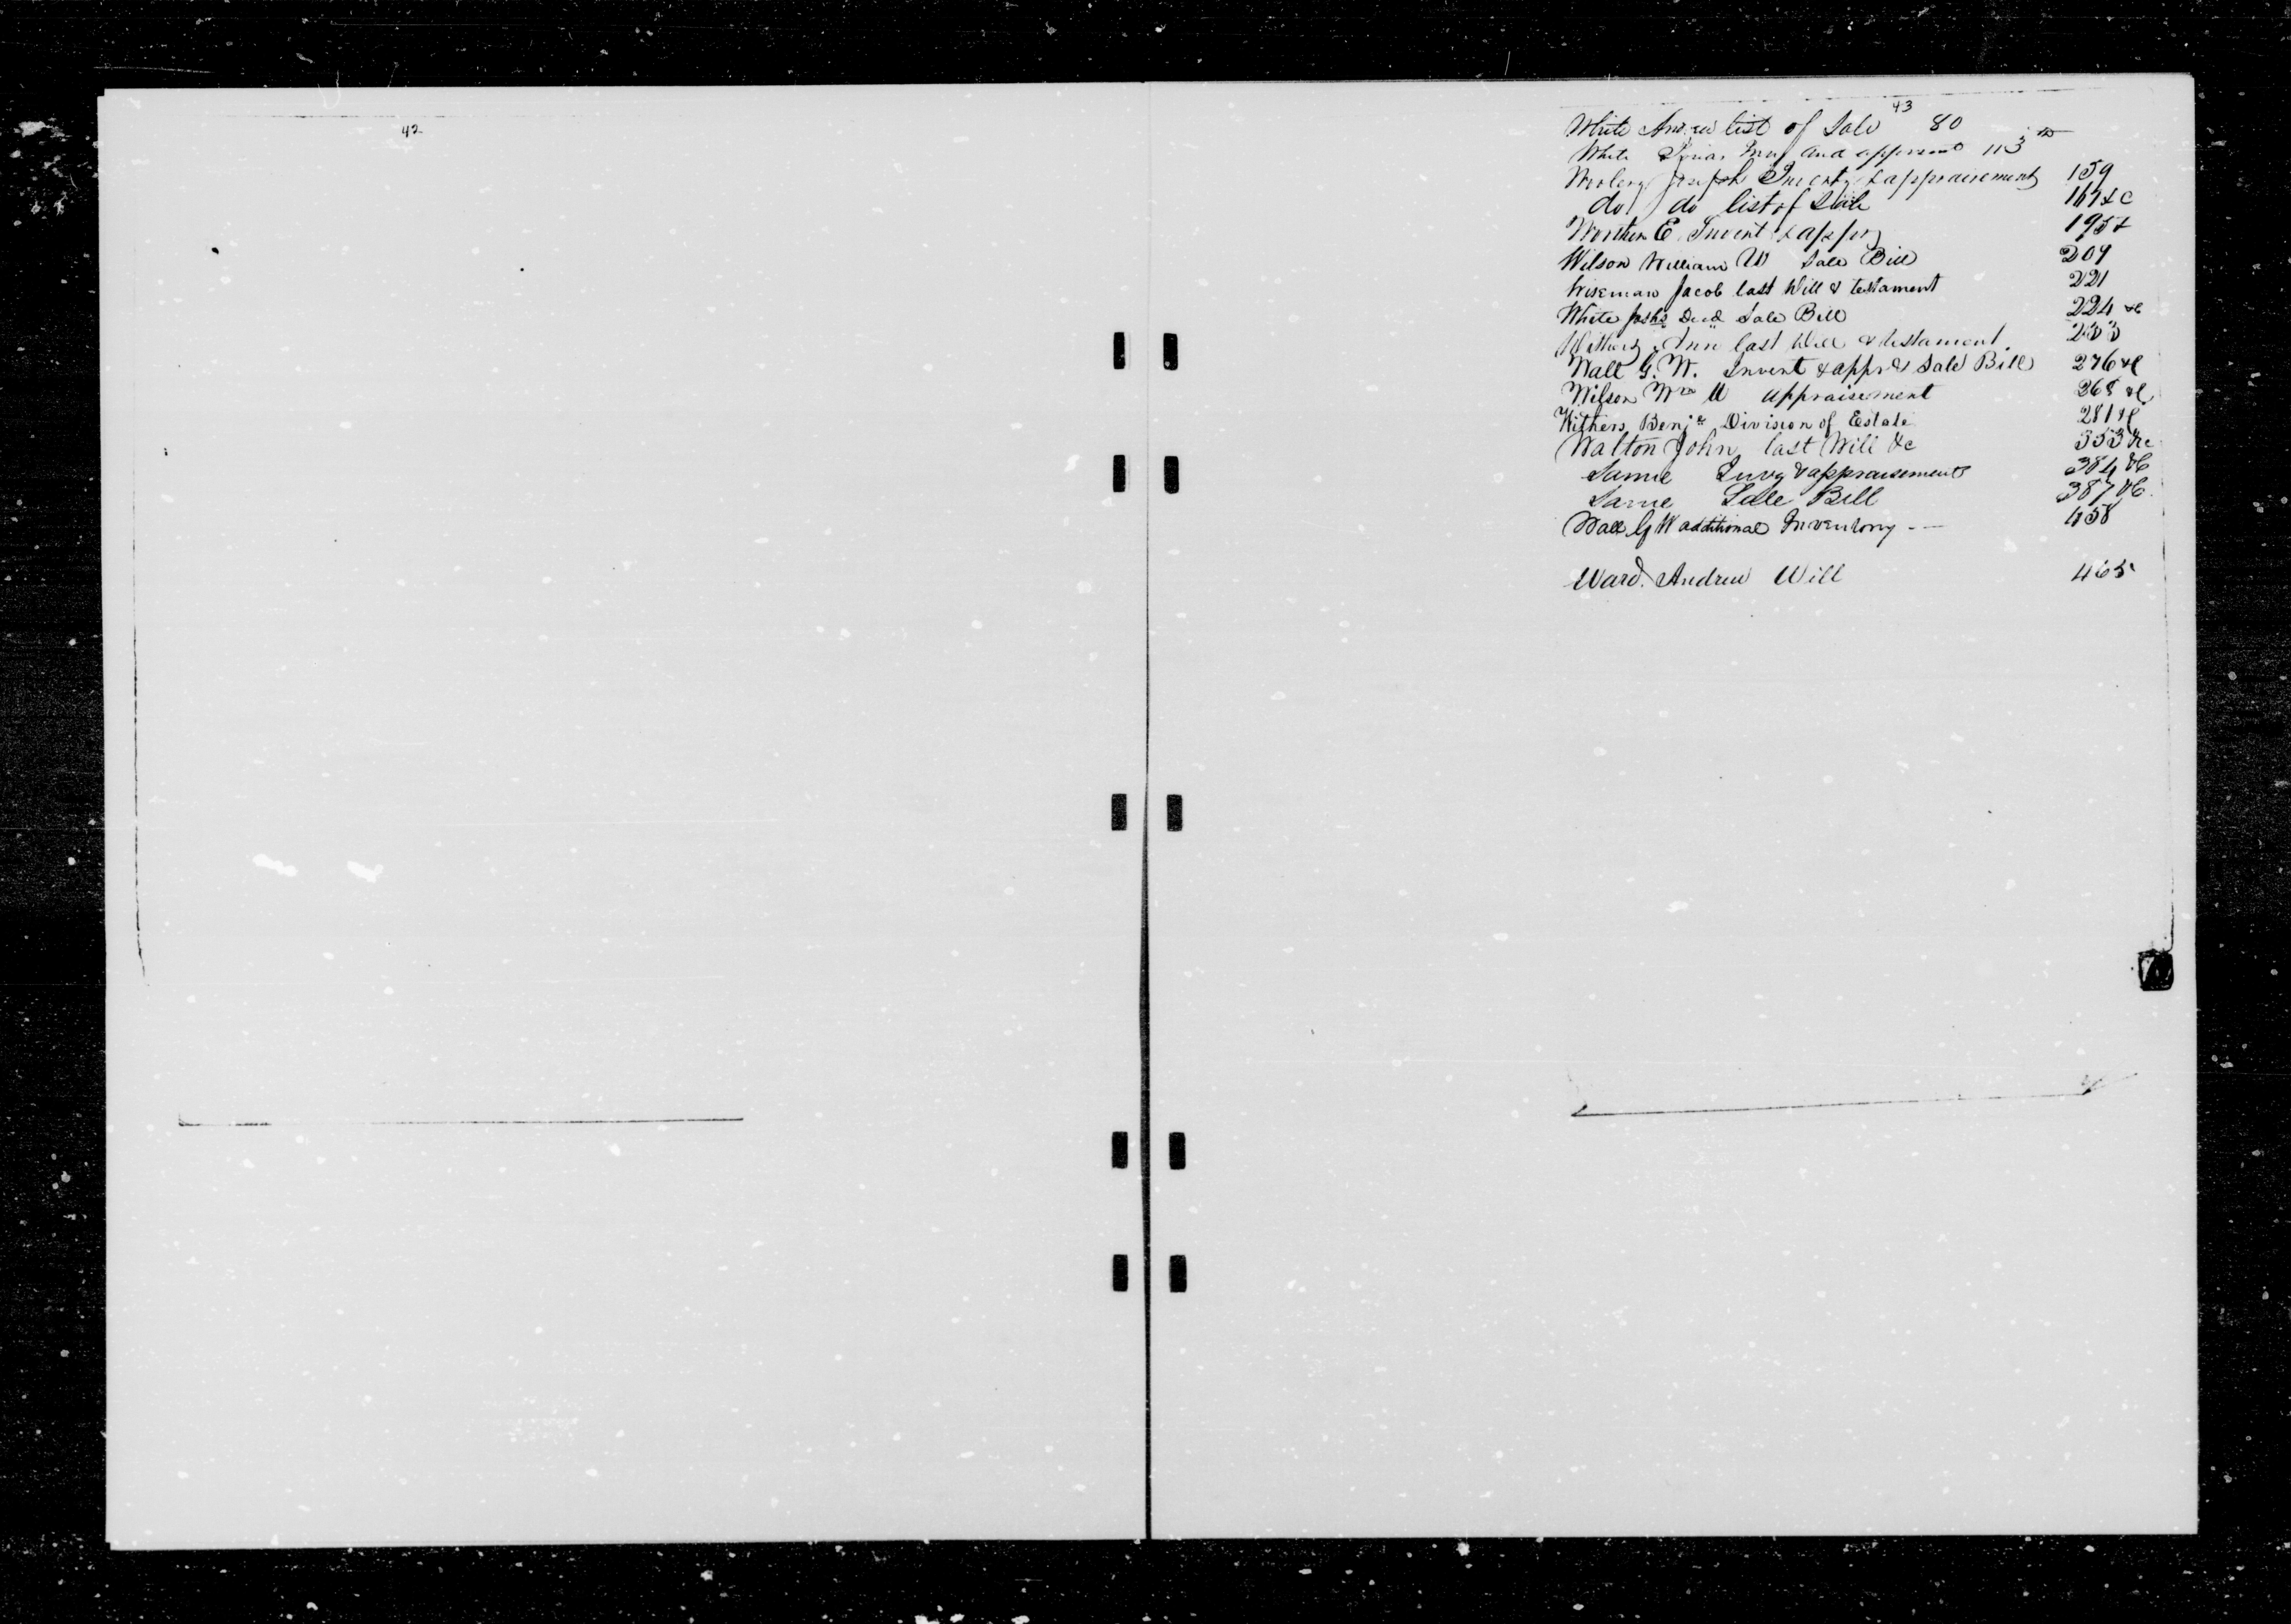 42
43
White Andrew list of Sale 80
White and apprasmt 113
Joseph Inventy & appraisement 159
do do list of Sale 167 &c
Worthen E. Invent & appr 195 &
Wilson William W Sale Bill 209
Wiseman Jacob last Will & testament 221
White Decd Sale Bill 224 &c
Withers Ann last Will & testament. 233
Wall G. W. Invent & appr & Sale Bill 276 &c
Wilson Wm W appraisement 268 &c
Withers Benjn Division of Estate 281 &c
Walton John last Will &c 353 &c
Same Invy & appraisement 384 &c
Same Sale Bill 387 &c.
Wall G W additional Inventory - — 458
Ward. Andrew Will 465